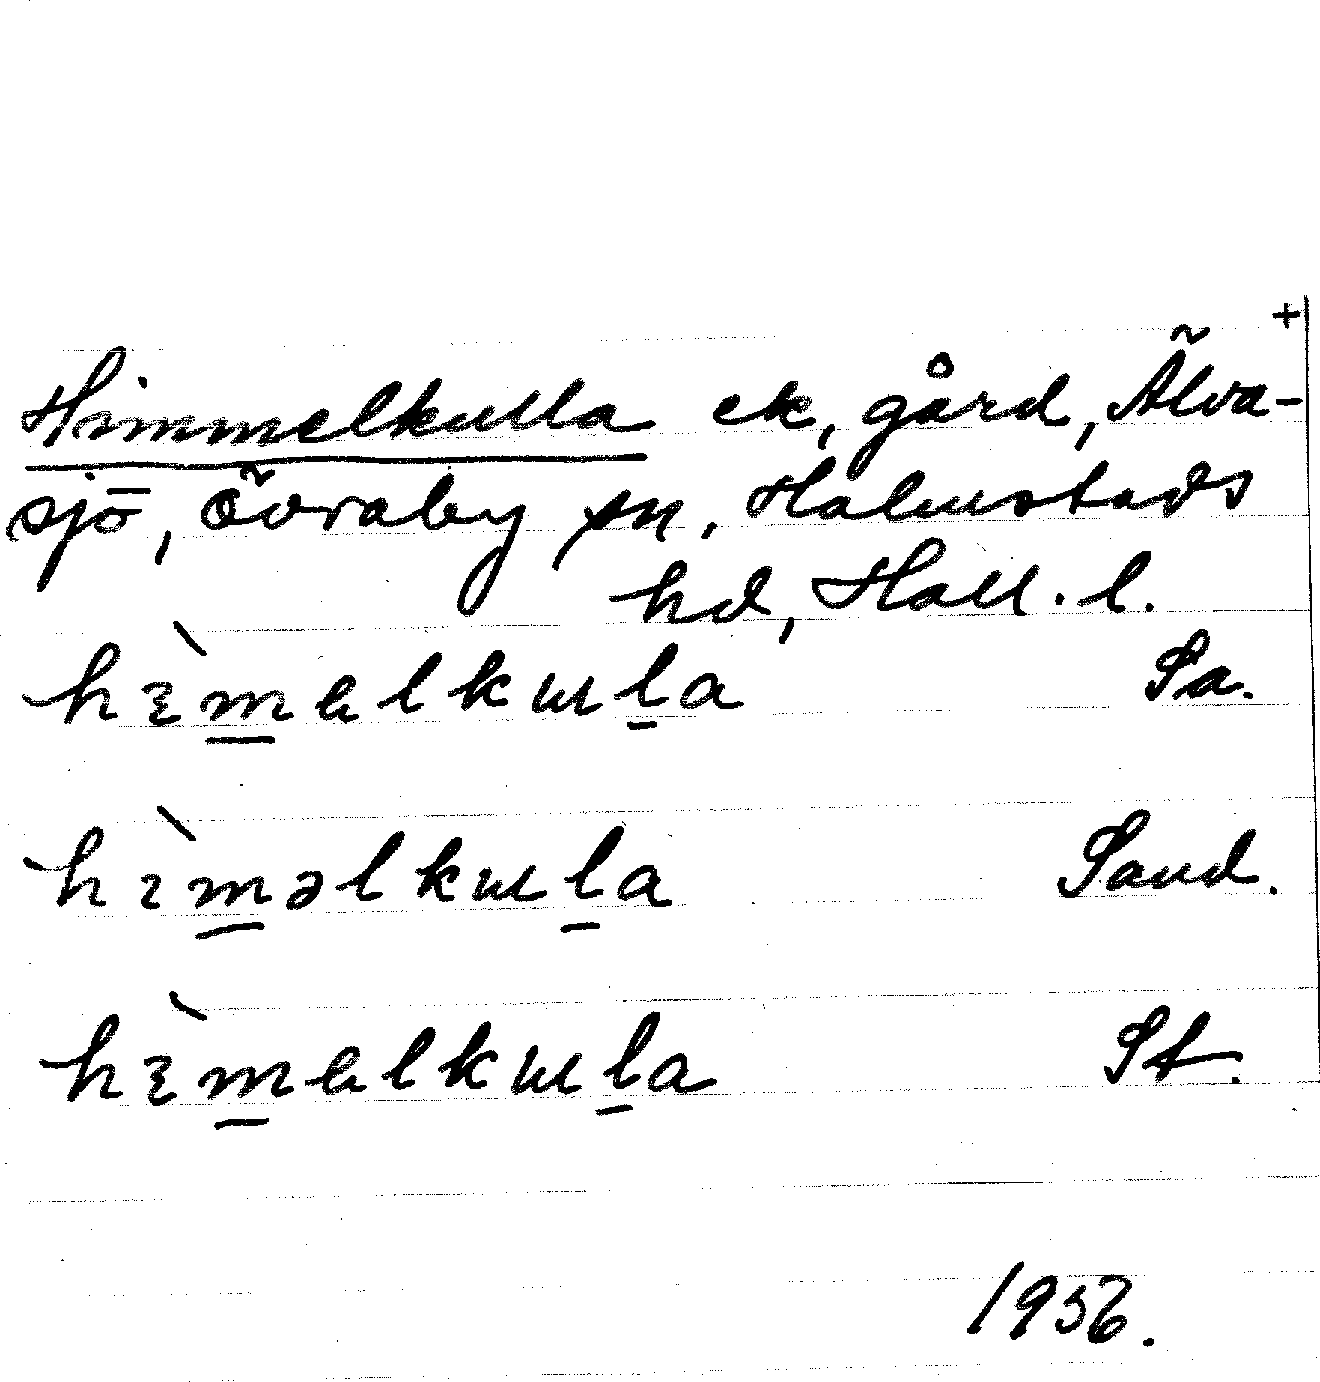 +
Himmelkulla ek, gård, Älva-
sjö, Övraby sn, Halmstads
hd, Hall. l.
hìmelkulla Sa.
hìməlkulla Sand.
hìmelkulla St.
1936.